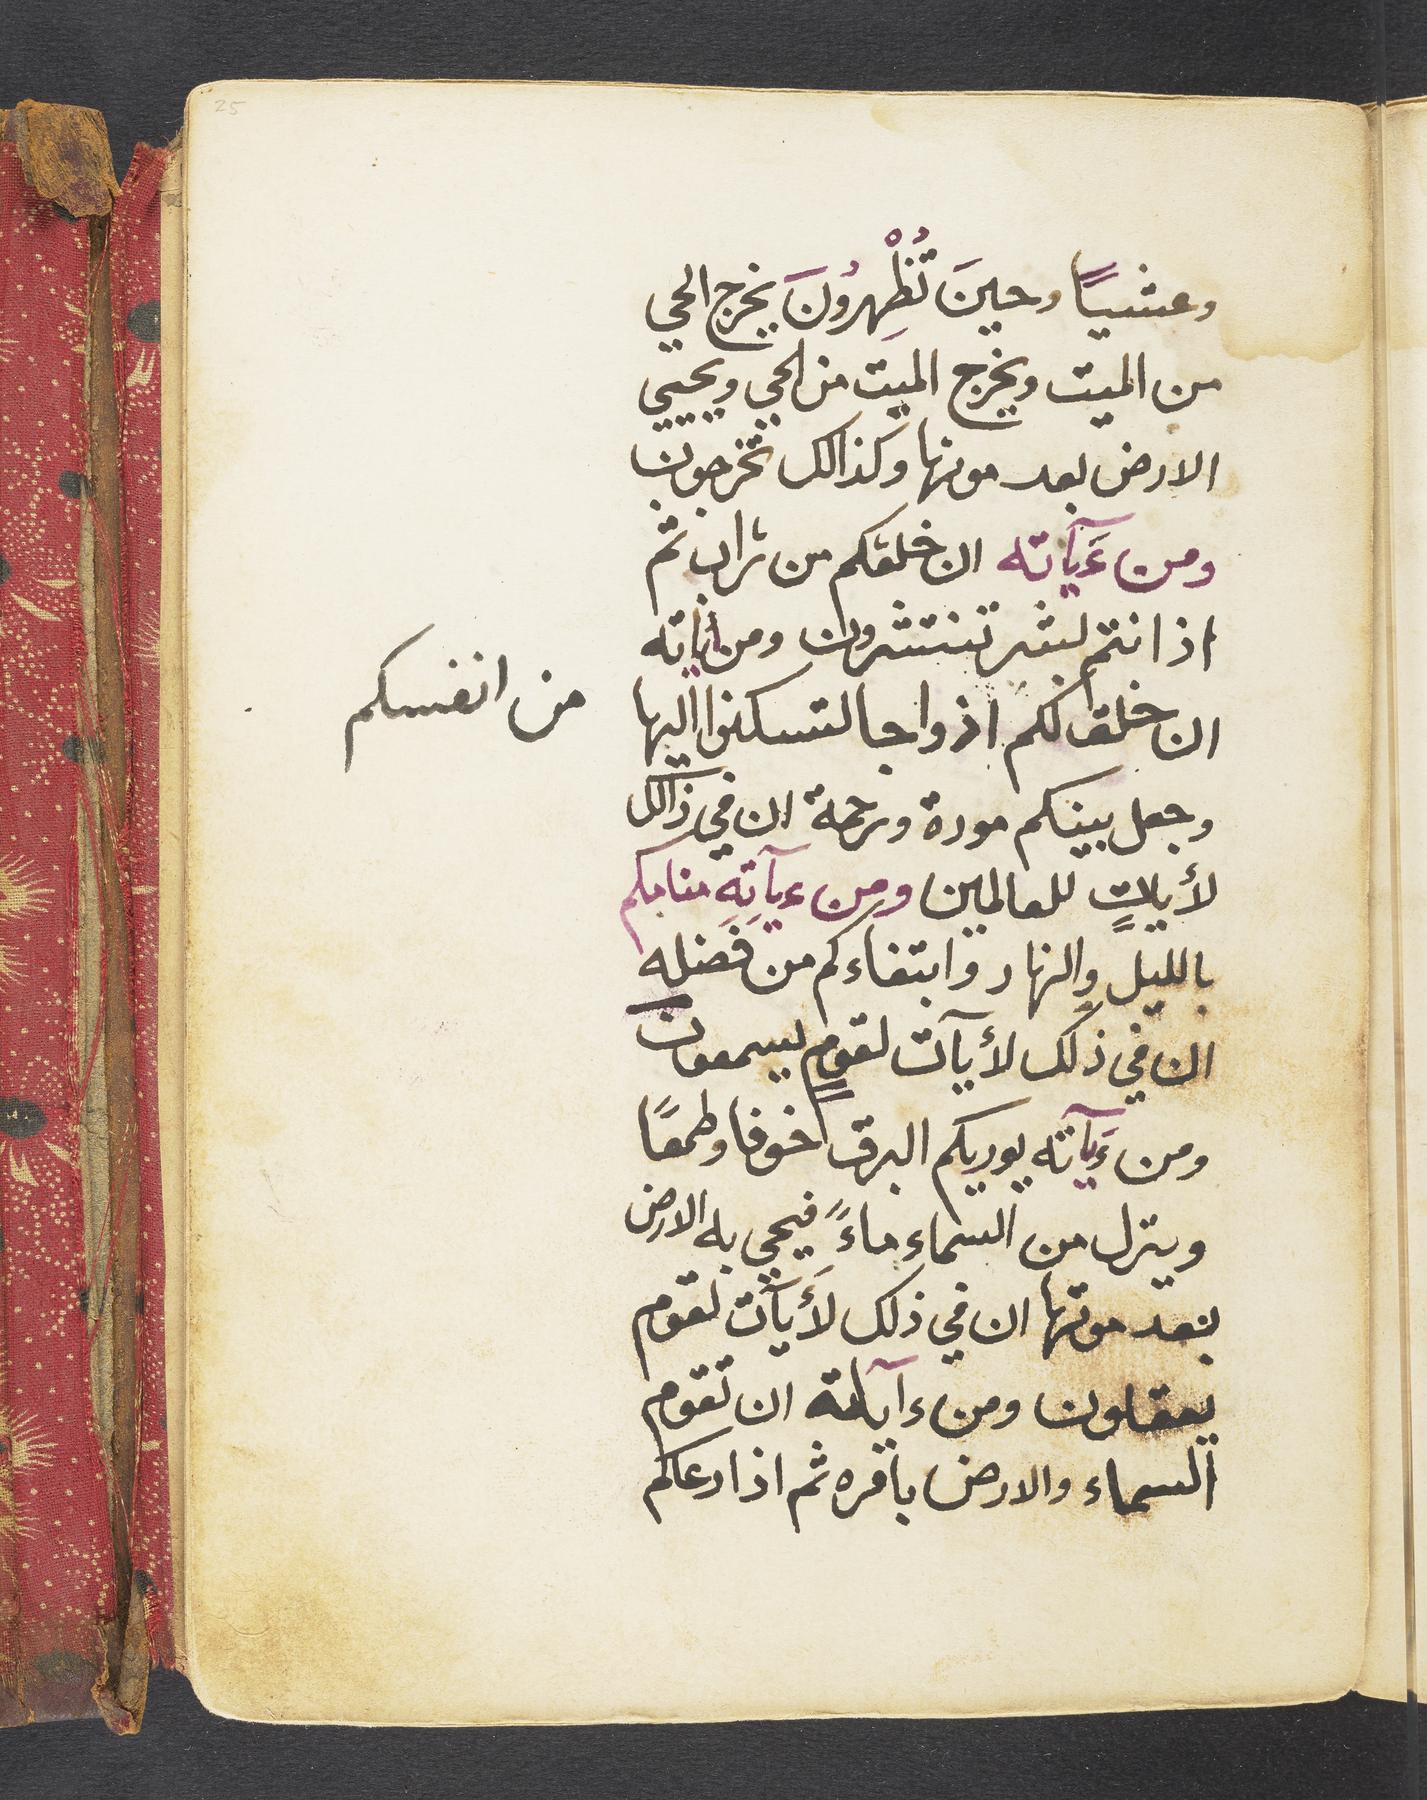 25
وعشياً وحينَ تُظْهِرُونَ يخرج الحي
من الميت ويخرج الميت من الحي ويحيي
الارض بعد موتها وكذالك تخرجون
ومن ءَيآته ان خلقكم من تراب ثم
اذا انتم بشر تنتشرون ومن أياته
ان خلق لكم ازواجا لتسكنوا اليها
من انفسكم
وجعل بينكم مودة ورحمة ان في ذالك
لأيات للعالمين ومن ءيآتِهِ منامكم
بالليل والنهار وابتغاءكم من فضله
ان في ذلك لأيآت لقومٍ يسمعون
ومن ءَيآته يوريكم البرق خوفا وطمعًا
وينزل من السماء ماءً فيحي به الارض
بعد موتها ان في ذلك لَأَيآت لقوم
يعقلون ومن ءآياته ان تقوم
السماء والارض بأمره ثم اذا دعاكم